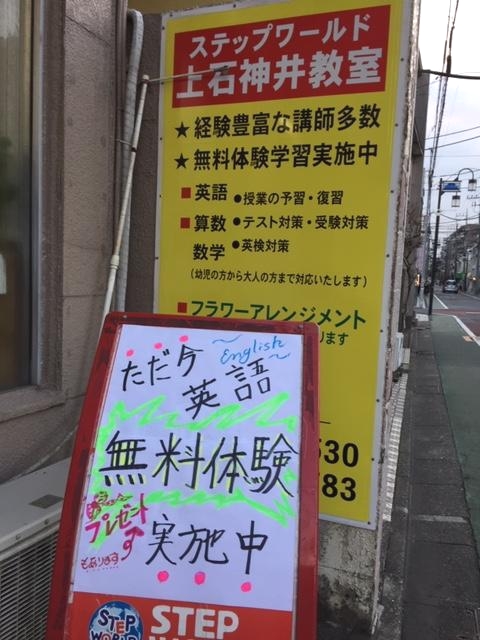 ステップワールド
上石神井教室
★経験豊富な講師多数
★無料体験学習実施中
■英語 ●授業の予習・復習
■算数 ●テスト対策・受験対策
数学 ●英検対策
(幼児の方から大人の方まで対応いたします)
■フラワーアレンジメント
ります
530
83
ただ今
~English~
英語
無料体験
プレゼント
もあります
実施中
STEP
WORLD
STEP